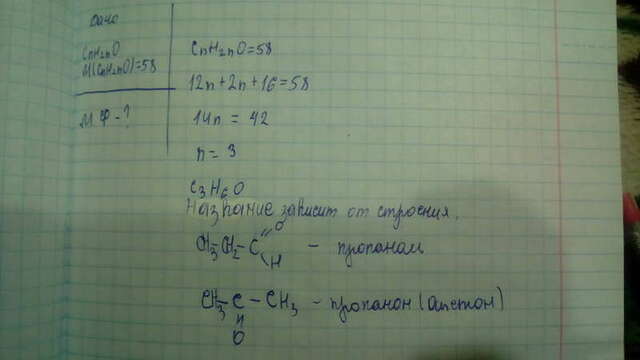 Дано
CnH2nO
M(CnH2nO)=58
М.Ф-?
CnH2nO=58
12n+2n+16=58
14n = 42
n= 3
C3H6O
Название зависит от строения.
CH3-CH2-C
=O
H
- пропаналь
CH3-C-CH3 - пропанон (ацетон)
O